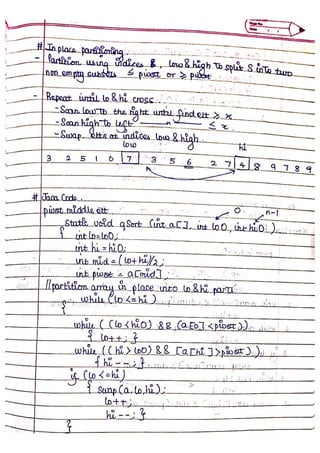 # In place partitioning.
- Partition using indices &, low & high to split S into two
non empty subsets ≤ pivot or ≥ pivot
- Repeat until lo & hi cross
- Scan low to the right until find elt ≥ x
- Scan high to left ≤ x
- Swap elts at indices low & high.
low hi
3 2 5 1 0 7 3 5 6 2 7 4 8 9 7 8 9
# Java Code.
0 n-1
pivot middle elt
Static void qSort (int a[], int lo0, int hi0)
{ int lo=lo0;
int hi = hi0;
int mid = (lo+hi)/2;
int pivot = a[mid];
//partition array in place into lo & hi parts
while (lo <= hi)
{
while ( (lo < hi0) && (a[lo] < pivot))
{ lo++; }
while ((hi > lo0) && [a[hi] > pivot))
{ hi--; }
if (lo <= hi)
{ swap (a, lo, hi);
lo++;
hi--; }
}